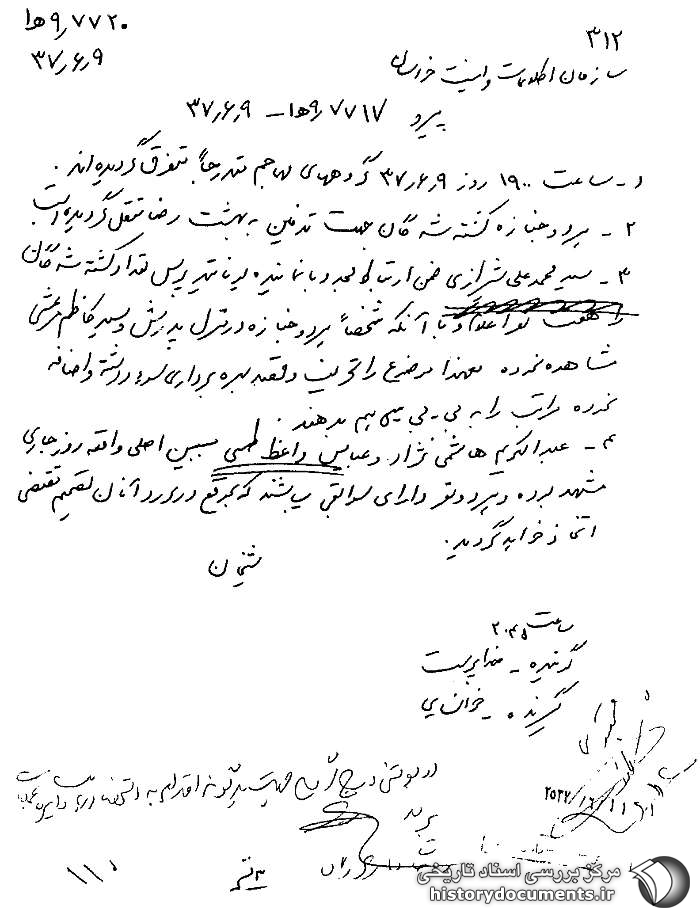 ۹٫۷۷۲۰ ه‍ ا
۳۷٫۶٫۹
۳۱۲
سازمان اطلاعات و امنیت خراسان
پیرو ۹٫۷۷۱۷ ه‍ ا - ۳۷٫۶٫۹
۱- ساعت ۱۹۰۰ روز ۳۷٫۶٫۹ گروههای مهاجم تدریجاً متفرق گردیده‌اند.
۲- هر دو جنازه کشته شدگان جهت تدفین به بهشت رضا منتقل گردیده است
۳- سید محمدعلی شیرازی ضمن ارتباط مجدد با نماینده یونایتدپرس تعداد کشته شدگان
را هفت نفر اعلام و با آنکه شخصاً هر دو جنازه در منزل پدرش و سید کاظم مرعشی
مشاهده نموده معهذا موضوع را تحریف و قصد بهره برداری سوء داشته و اضافه
نموده مراتب را به بی-بی سی هم بدهند.
۴- عبدالکریم هاشمی نژاد و عباس واعظ طبسی مسببین اصلی واقعه روز جاری
مشهد بوده و هر دو نفر دارای سوابقی میباشند که بموقع در مورد آنان تصمیم مقتضی
اتخاذ خواهد گردید.
شیخان
ساعت ۲۰۴۵
گوینده - خداپرست
گیرنده -
۲۵۳۷/۶/۱۱
۳ نفر
۱۱۰
مرکز بررسی اسناد تاریخی
historydocuments.ir